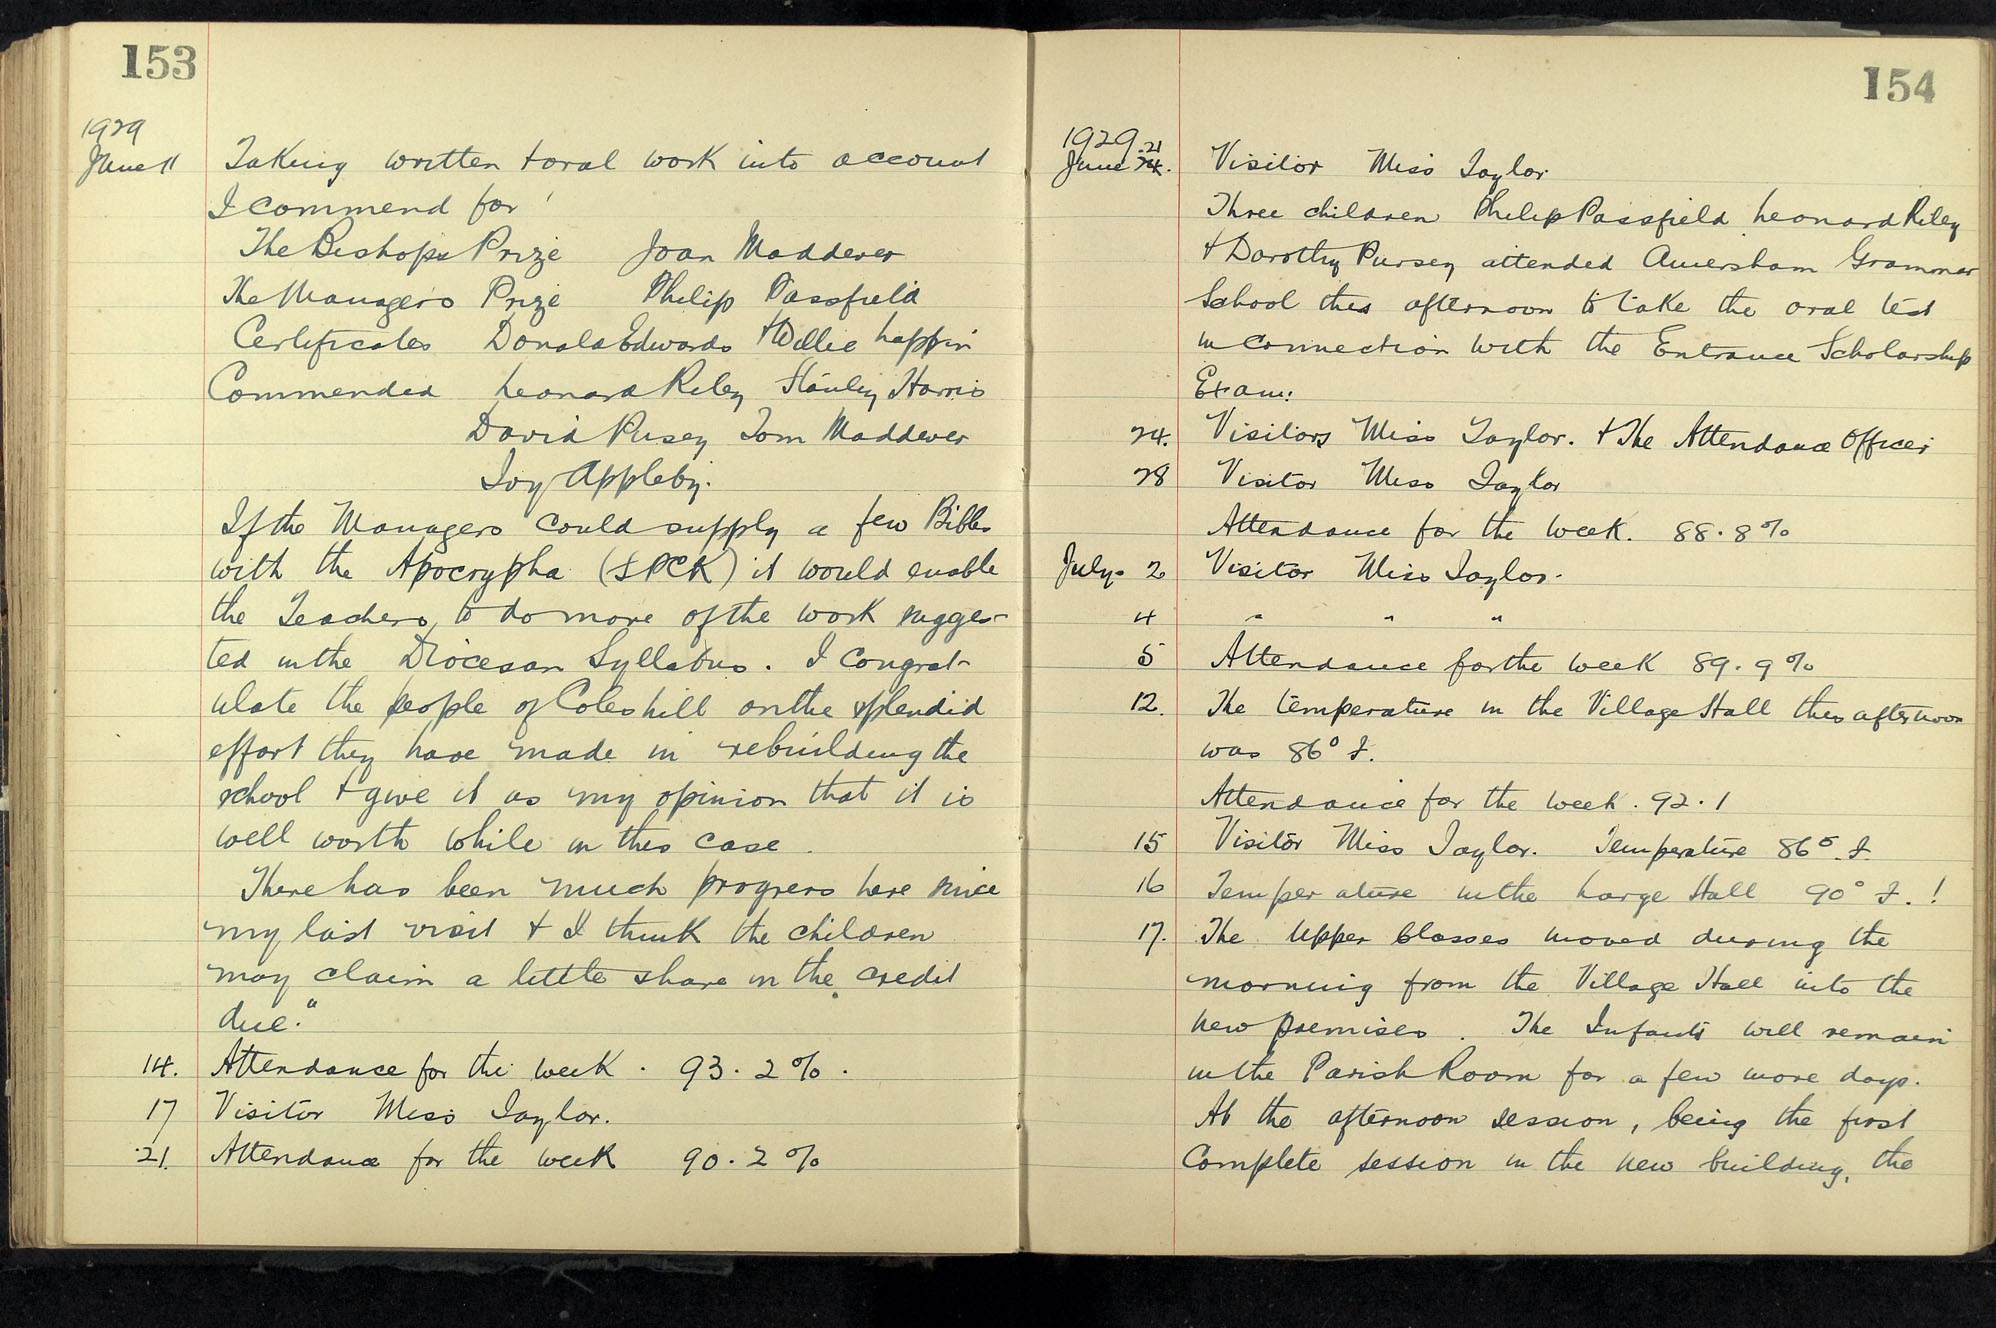 153
1929
June 11 Taking written & oral work into account
I commend for
The Bishops Prize Joan Maddever
The Managers Prize Philip Passfield
Certificates Donald Edwards & Willie Lappin
Commended Leonard Riley Stanley Harris
David Pusey Tom Maddever
Joy Appleby.
If the Managers could supply a few Bibles
with the Apocrypha (SPCK) it would enable
the Teachers to do more of the work sugges-
ted in the Diocesan Syllabus. I congrat-
ulate the people of Coleshill on the splendid
effort they have made in rebuilding the
school & give it as my opinion that it is
well worth while in this case.
There has been much progress here since
my last visit & I think the children
may claim a little share in the credit
due."
14. Attendance for the week . 93.2%.
17 Visitor Miss Taylor.
21. Attendance for the week 90.2%
154
1929. 21
June 24. Visitor Miss Taylor
Three children Philip Passfield Leonard Riley
& Dorothy Pursey attended Amersham Grammar
School this afternoon to take the oral test
in connection with the Entrance Scholarship
Exam:
24. Visitors Miss Taylor. & The Attendance Officer
28 Visitor Miss Taylor
Attendance for the week. 88.8%
July. 2 Visitor Miss Taylor.
4 " " "
5 Attendance for the week 89.9%
12. The temperature in the Village Hall this afternoon
was 86° F.
Attendance for the week. 92.1
15 Visitor Miss Taylor. Temperature 86°. F.
16 Temperature in the Large Hall 90° F. !
17. The Upper Classes moved during the
morning from the Village Hall into the
new premises. The Infants will remain
in the Parish Room for a few more days.
At the afternoon session, being the first
complete session in the new building, the